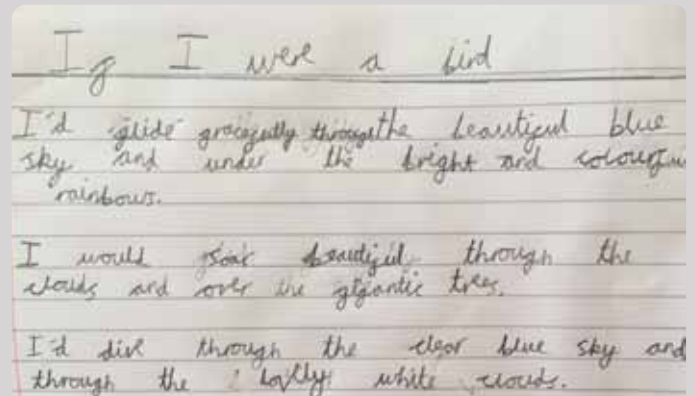 If I were a bird
I'd glide gracefully through the beautiful blue
sky and under the bright and colourful
rainbows.
I would soar beautiful through the
clouds and over the gigantic trees.
I'd dive through the clear blue sky and
through the lovely white clouds.